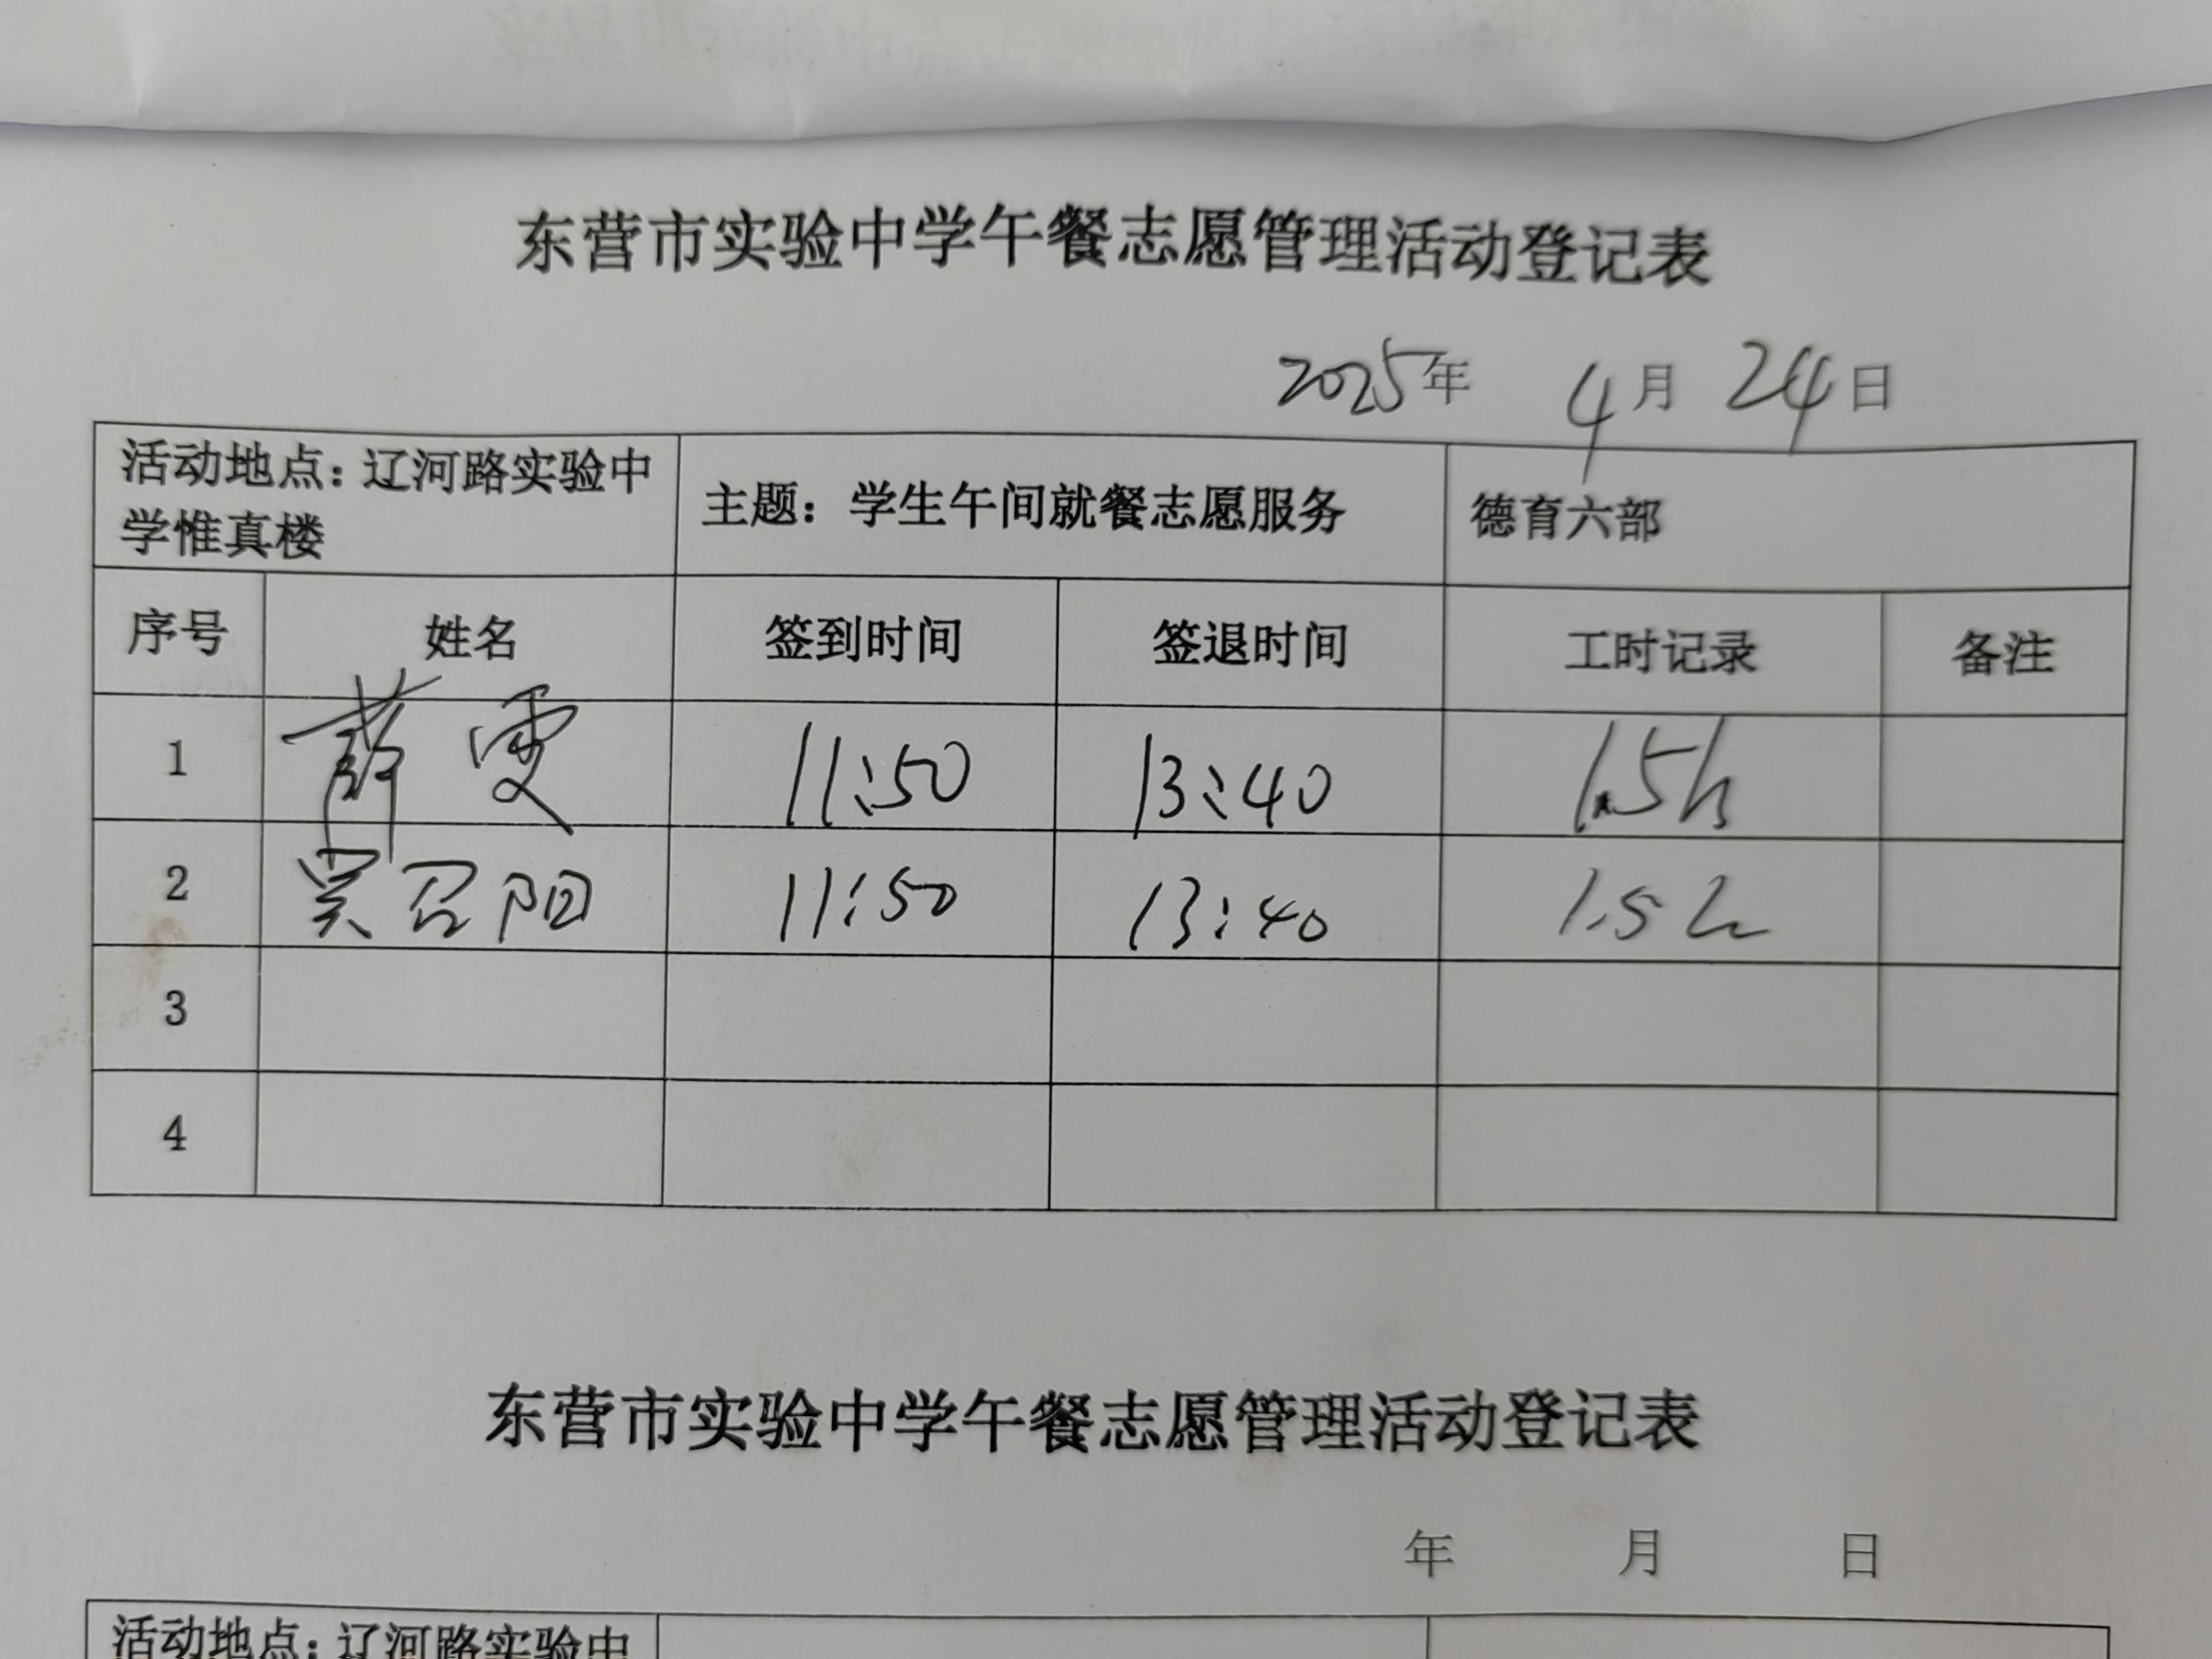 东营市实验中学午餐志愿管理活动登记表
2025年 4月 24日
活动地点：辽河路实验中
学惟真楼
主题：学生午间就餐志愿服务
德育六部
序号 姓名 签到时间 签退时间 工时记录 备注
1 薛雯 11:50 13:40 1.5h
2 吴召阳 11:50 13:40 1.5h
3
4
东营市实验中学午餐志愿管理活动登记表
年 月 日
活动地点：辽河路实验中